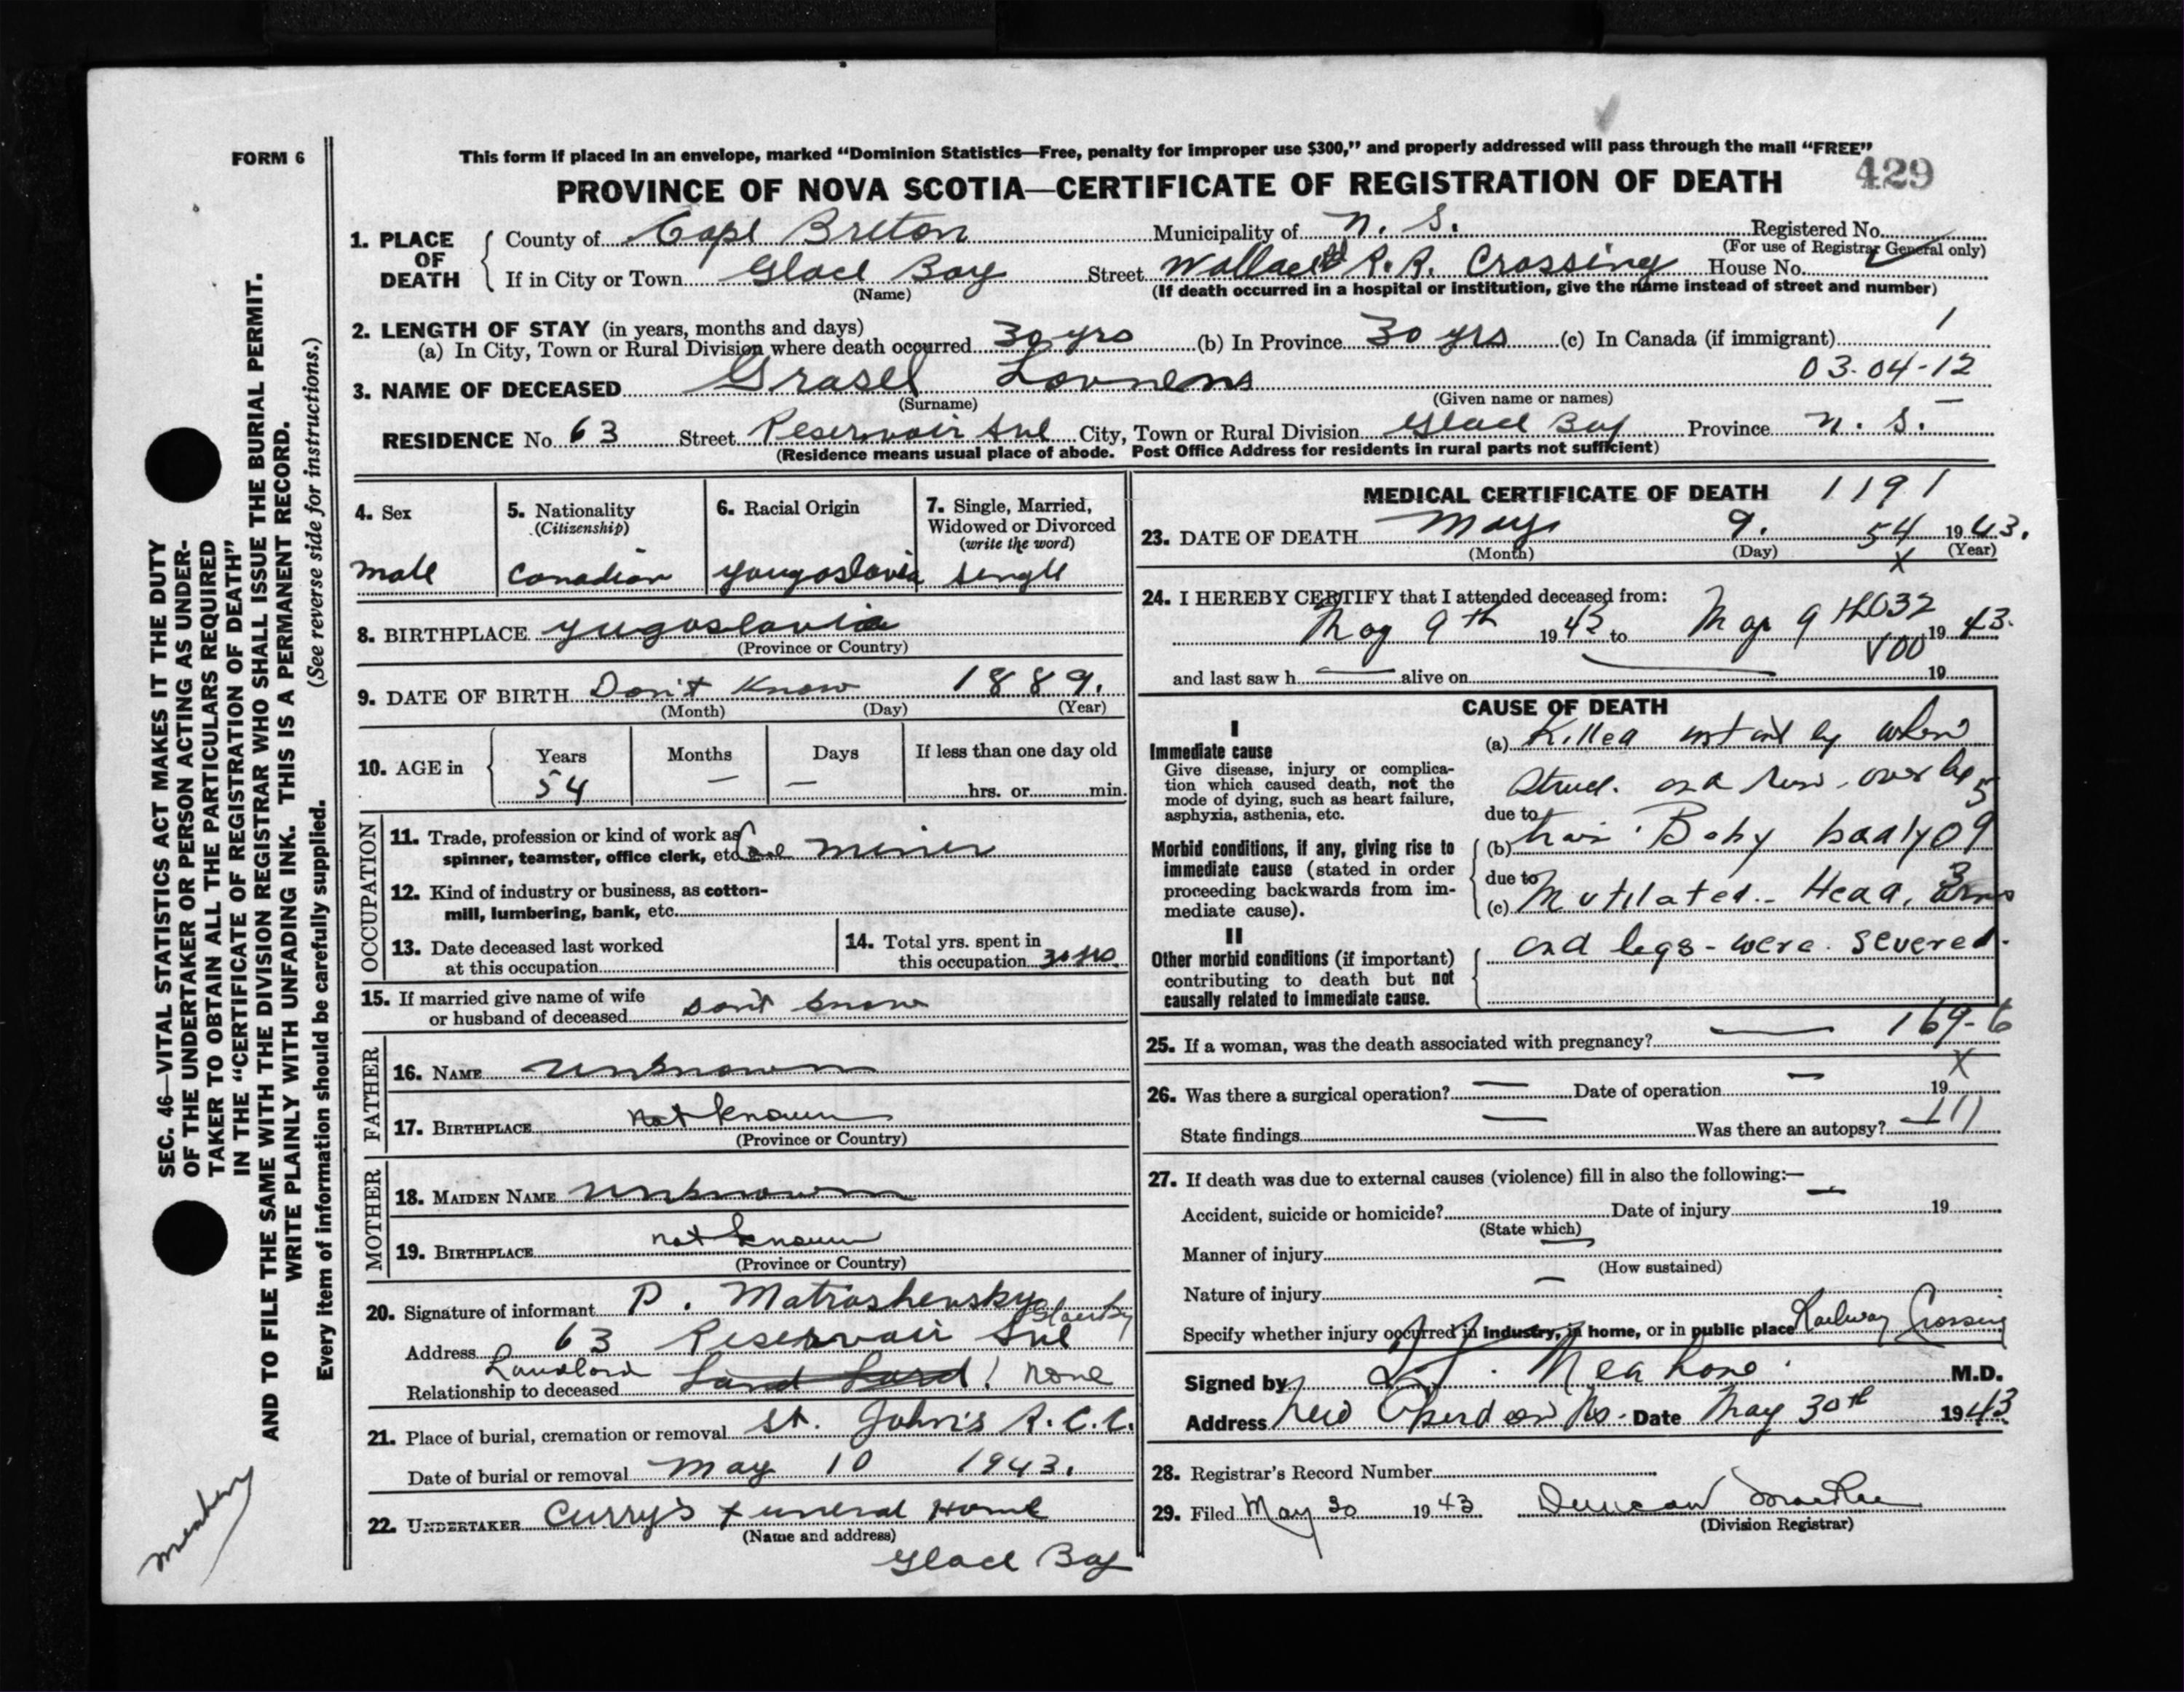 FORM 6
This form if placed in an envelope, marked “Dominion Statistics—Free, penalty for improper use $300,” and properly addressed will pass through the mail “FREE”
429
PROVINCE OF NOVA SCOTIA—CERTIFICATE OF REGISTRATION OF DEATH
1. PLACE OF DEATH
County of Cape Breton Municipality of N. S. Registered No.
(For use of Registrar General only)
If in City or Town Glace Bay Street R.R. Crossing House No.
(Name) (If death occurred in a hospital or institution, give the name instead of street and number)
2. LENGTH OF STAY (in years, months and days)
(a) In City, Town or Rural Division where death occurred 30 yrs (b) In Province 30 yrs (c) In Canada (if immigrant)
03-04-12
3. NAME OF DECEASED Grasel
(Surname) (Given name or names)
RESIDENCE No 63 Street Reservoir Ave City, Town or Rural Division Glace Bay Province N. S.
(Residence means usual place of abode. Post Office Address for residents in rural parts not sufficient)
4. Sex
Male
5. Nationality
(Citizenship)
Canadian
6. Racial Origin
Yougoslavia
7. Single, Married,
Widowed or Divorced
(write the word)
Single
8. BIRTHPLACE Yugoslavia
(Province or Country)
9. DATE OF BIRTH Don't Know 1889.
(Month) (Day) (Year)
10. AGE in
Years Months Days If less than one day old
54 — — hrs. or min.
OCCUPATION
11. Trade, profession or kind of work as
spinner, teamster, office clerk, etc. Miner
12. Kind of industry or business, as cotton-
mill, lumbering, bank, etc.
13. Date deceased last worked
at this occupation
14. Total yrs. spent in
this occupation 30 yrs
15. If married give name of wife
or husband of deceased Don't know
FATHER
16. NAME Unknown
17. BIRTHPLACE not known
(Province or Country)
MOTHER
18. MAIDEN NAME Unknown
19. BIRTHPLACE not known
(Province or Country)
20. Signature of informant P. Matroshensky
Address 63 Reservoir Ave Glace Bay
Landlord
Relationship to deceased Land Lord none
21. Place of burial, cremation or removal St. John's R.C.C.
Date of burial or removal May 10 1943.
22. UNDERTAKER Curry's Funeral Home
(Name and address)
Glace Bay
MEDICAL CERTIFICATE OF DEATH 1191
23. DATE OF DEATH May 9. 54 1943.
(Month) (Day) (Year)
X
24. I HEREBY CERTIFY that I attended deceased from:
032
May 9th 1943 to May 9th 1943.
and last saw h — alive on 19
CAUSE OF DEATH
I
Immediate cause
Give disease, injury or complica-
tion which caused death, not the
mode of dying, such as heart failure,
asphyxia, asthenia, etc.
Morbid conditions, if any, giving rise to
immediate cause (stated in order
proceeding backwards from im-
mediate cause).
II
Other morbid conditions (if important)
contributing to death but not
causally related to immediate cause.
(a) Killed instantly when
struck and run over by
due to
(b) train. Body badly
due to
(c) Mutilated - Head, arms
and legs - were severed.
169-6
25. If a woman, was the death associated with pregnancy? —
X
26. Was there a surgical operation? — Date of operation — 19
State findings — Was there an autopsy?
27. If death was due to external causes (violence) fill in also the following:—
Accident, suicide or homicide? Date of injury — 19
(State which)
Manner of injury —
(How sustained)
Nature of injury —
Specify whether injury occurred in industry, in home, or in public place Railway Crossing
Signed by M.D.
Address New Aberdeen NS. Date May 30th 1943
28. Registrar's Record Number
29. Filed May 30 1943 Duncan
(Division Registrar)
SEC. 46—VITAL STATISTICS ACT MAKES IT THE DUTY
OF THE UNDERTAKER OR PERSON ACTING AS UNDER-
TAKER TO OBTAIN ALL THE PARTICULARS REQUIRED
IN THE “CERTIFICATE OF REGISTRATION OF DEATH”
AND TO FILE THE SAME WITH THE DIVISION REGISTRAR WHO SHALL ISSUE THE BURIAL PERMIT.
WRITE PLAINLY WITH UNFADING INK. THIS IS A PERMANENT RECORD.
Every item of information should be carefully supplied. (See reverse side for instructions.)